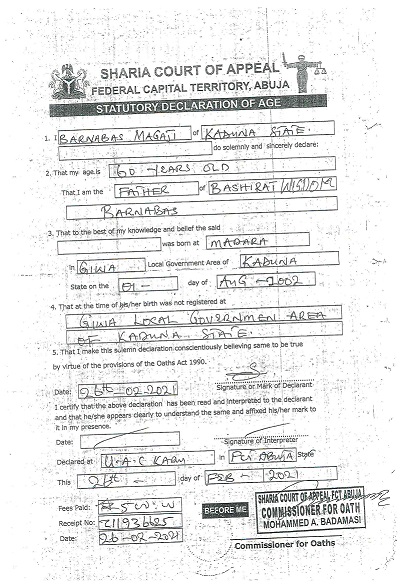 SHARIA COURT OF APPEAL
FEDERAL CAPITAL TERRITORY, ABUJA
STATUTORY DECLARATION OF AGE
1. I BARNABAS MAGAJI of KADUNA STATE.
do solemnly and sincerely declare:
2. That my age.is 60 YEARS OLD
That I am the FATHER of BASHIRAT
BARNABAS
3. That to the best of my knowledge and belief the said
was born at MADARA
in GIWA Local Government Area of KADUNA
State on the 01 - day of AUG - 2002
4. That at the time of his/her birth was not registered at
GIWA LOCAL GOVERNMEN AREA
OF KADUNA STATE.
5. That I make this solemn declaration conscientiously believing same to be true
by virtue of the provisions of the Oaths Act 1990.
Date: 26th-02-2021 Signature or Mark of Declarant
I certify that the above declaration has been read and interpreted to the declarant
and that he/she appears clearly to understand the same and affixed his/her mark to
it in my presence.
Date: Signature of Interpreter
Declared at U.A.C KARU in FCT ABUJA State
This 26th - day of FEB - 2021
Fees Paid:
Receipt No: 211936625
Date: 26-02-2021
BEFORE ME
SHARIA COURT OF APPEAL FCT ABUJA
COMMISSIONER FOR OATH
MOHAMMED A. BADAMASI
Commissioner for Oaths